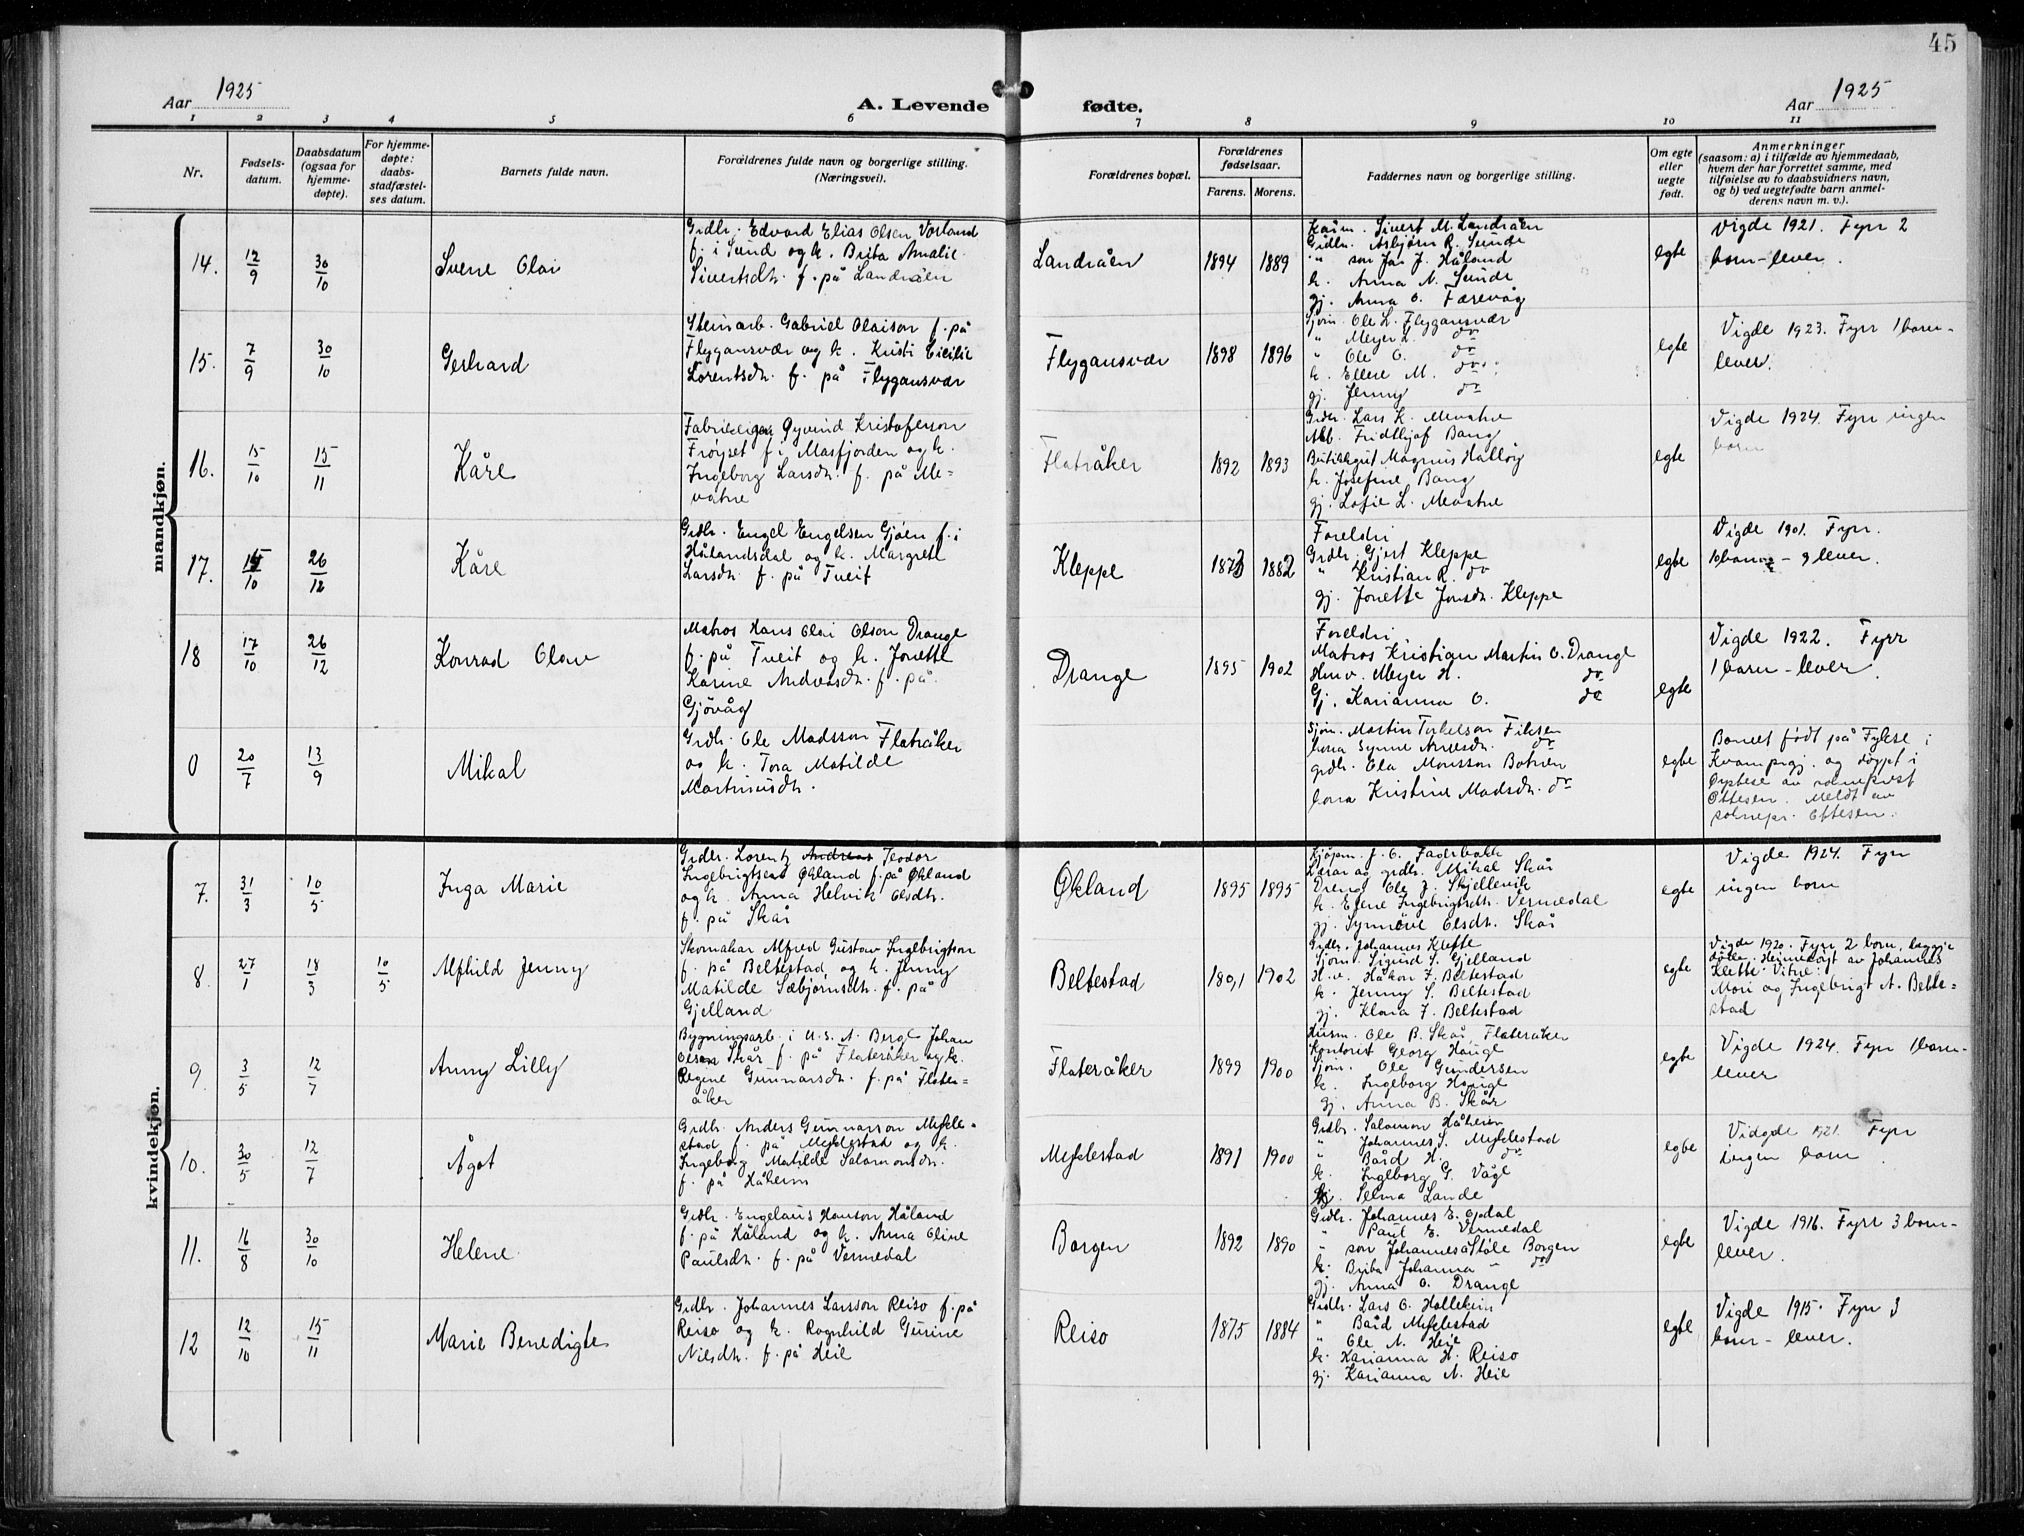 45
Aar 1925
A. Levende fødte.
Aar 1925
1 2 3 4 5 6 7 8 9 10 11
Nr.
Fødsels-
datum.
Daabsdatum
(ogsaa for
hjemme-
døpte).
For hjemme-
døpte:
daabs-
stadfæstel-
ses datum.
Barnets fulde navn.
Forældrenes fulde navn og borgerlige stilling.
(Næringsvei).
Forældrenes bopæl.
Forældrenes
fødselsaar.
Farens. Morens.
Faddernes navn og borgerlige stilling.
Om egte
eller
uegte
født.
Anmerkninger
(saasom: a) i tilfælde av hjemmedaab,
hvem der har forrettet samme, med
tilføielse av to daabsvidners navn,
og b) ved uegtefødte barn anmel-
derens navn m. v.).
mandkjøn.
14. 12/9 30/10
Sverre Olai
Grdbr. Edvard Elias Olsen Vorland
f. i Sund og k. Brita Amalie
Sivertsdtr. f. på Landråen
Landråen 1894 1889
Kårm. Sivert M. Landråen
Grdbr. Asbjørn R. Sunde
" son Jon J. Håland
k. Anna N. Sunde
gj. Anna O. Færevåg
egte
Vigde 1921. Fyrr 2
born - lever.
15. 7/9 30/10
Gerhard
Steinarb. Gabriel Olaison f. på
Flygansvær og k. Kristi Cicilie
Lorentsdtr. f. på Flygansvær
Flygansvær 1898 1896
Sjøm. Ole L. Flygansvær
" Meyer L. do
" Ole O. do
k. Ellene M. do
gj. Jenny do
egte
Vigde 1923. Fyrr 1 born -
lever.
16. 15/10 15/11
Kåre
Øyvind Kristoferson
Frøyset f. i Masfjorden og k.
Ingeborg Larsdtr. f. på Me-
vatne
Flatråker 1892 1893
Grdbr. Lars K. Mevatne
Fridthjof Bang
Magnus Halløy
k. Josefine Bang
gj. Sofie L. Mevatne
egte
Vigde 1924. Fyrr ingen
born
17. 15/10 26/12
Kåre
Grdbr. Engel Engelsen Gjøen f. i
Hålandsdal og k. Margrete
Larsdtr. f. på Tveit
Kleppe 1873 1882
Foreldri
Grdbr. Gjert Kleppe
" Kristian R. do
gj. Jonette Jonsdtr. Kleppe
egte
Vigde 1901. Fyrr
10 born - 9 lever.
18 17/10 26/12
Konrad Olav
Matros Hans Olai Olson Drange
f. på Tveit og k. Jonette
Karine Andreasdtr. f. på
Gjøvåg
Drange 1895 1902
Foreldri
Matros Kristian Martin O. Drange
Hmv. Meyer H. do
Gj. Karianna O. do
egte
Vigde 1922. Fyrr
1 born - lever.
0 20/7 13/9
Mikal
Grdbr. Ole Madsson Flatråker
og k. Tora Matilde
Martinusdtr.
Sjøm. Martin Torkelson Fiksen
kona Synne Arnesdtr. do
grdbr. Ola Monsson Botnen
kona Kristine Madsdtr. do
egte
Barnet født på Fykse i
Kvamprgj. og døypt i
Øystese av sokneprest
Ottesen. Meldt av
soknepr. Ottesen.
kvindekjøn.
7. 31/3 10/5
Inga Marie
Grdbr. Lorentz Andreas Teodor
Ingebrigtsen Økland f. på Økland
og k. Anna Helvik Olsdtr.
f. på Skår
Økland 1895 1895
Kjøpm. J. O. Fagerbakk
Lærar og grdbr. Mikal Skår
Dreng Ole J. Skjellevik
k. Elene Ingebrigtsdtr. Vermedal
gj. Synnøve Olsdtr. Skår
egte
Vigde 1924. Fyrr
ingen born
8. 27/1 18/3 10/5
Alfhild Jenny
Skomakar Alfred Gustav Ingebrigtson
f. på Beltestad og k. Jenny
Matilde Sæbjørnsdtr. f. på
Gjelland
Beltestad 1891 1902
Grdbr. Johannes Klette
Sjøm. Sigurd S. Gjelland
H.v. Håkon I. Beltestad
k. Jenny S. Beltestad
gj. Klara I. Beltestad
egte
Vigde 1920. Fyrr 2 born, begge
døde. Heimedøypt av Johannes
Klette. Vitne:
Mori og Ingebrigt A. Belte-
stad
9. 3/5 12/7
Anny Lilly
Bygningsarb. i U.S.A. Bergt Johan
Olsen Skår f. på Flateråker og k.
Regine Gunnarsdtr. f. på Flater-
åker
Flateråker 1899 1900
Husm. Ole B. Skår, Flateråker
Kontorist Georg Hauge
Sjøm. Ole Gundersen
k. Ingeborg Hauge
gj. Anna B. Skår
egte
Vigde 1924. Fyrr 1 born -
lever
10. 30/5 12/7
Ågot
Grdbr. Anders Gunnarson Mykle-
stad f. på Myklestad og k.
Ingeborg Matilde Salamonsdtr.
f. på Håheim
Myklestad 1891 1900
Grdbr. Salomon Håheim
" Johannes S. Myklestad
" Båld H. do
k. Ingeborg G. Våge
gj. Selma Lande
egte
Vidgde 1921. Fyrr
ingen born
11. 16/8 30/10
Helene
Grdbr. Engelaus Hanson Håland
f. på Håland og k. Anna Oline
Paulsdtr. f. på Vermedal
Borgen 1892 1890
Grdbr. Johannes E. Opdal
" Paul E. Vermedal
" son Johannes Ståle Borgen
k. Brita Johanna - do
gj. Anna O. Drange
egte
Vigde 1916. Fyrr 3 born -
lever.
12 12/10 15/11
Marie Benedigte
Grdbr. Johannes Larsson Reiso f. på
Reiso og k. Ragnhild Gurine
Nilsdtr. f. på Heie
Reiso 1875 1884
Grdbr. Lars O. Holleheim
" Båld Myklestad
" Ole N. Heie
k. Karianna H. Reiso
gj. Karianna N. Heie
egte
Vigde 1915. Fyrr 3
born - lever.